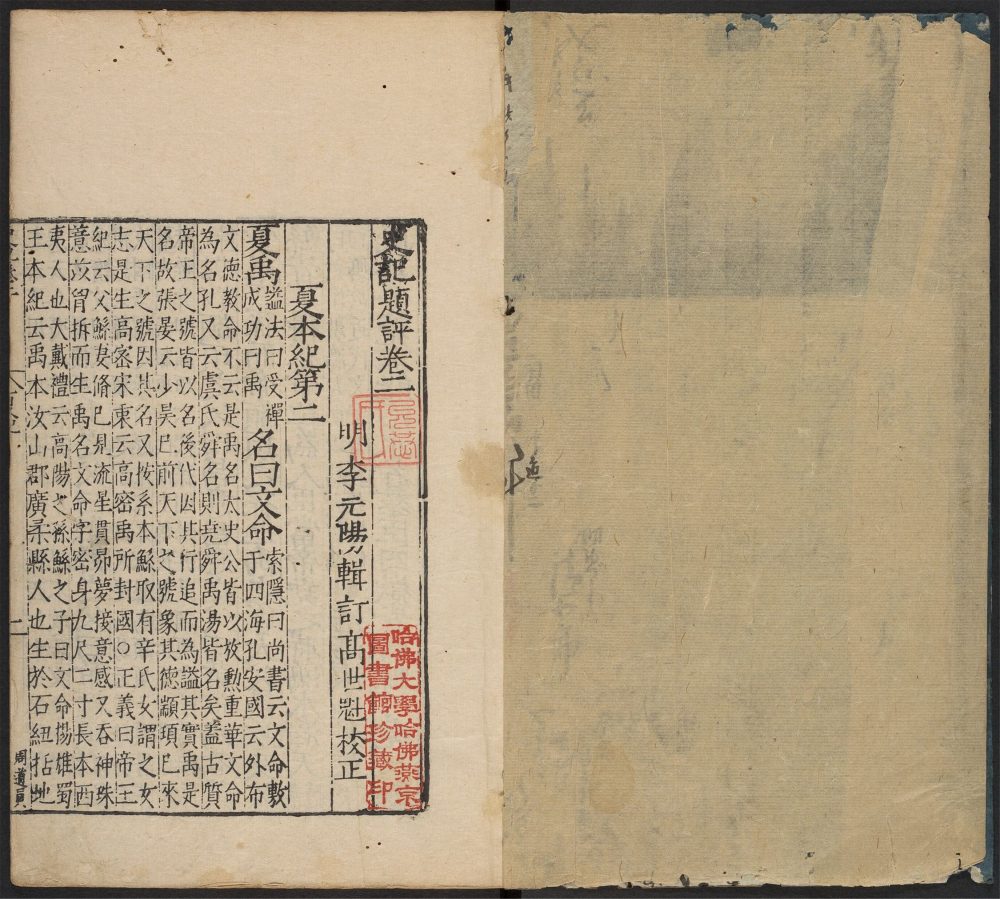 史記題評卷二
明 李元陽輯訂 高世魁校正
哈佛大學哈佛燕京
圖書館珍藏印
夏本紀第二
夏禹
謚法曰受禪
成功曰禹
名曰文命
索隱曰尚書云文命敷
于四海孔安國云外布
文德教命不云是禹名太史公皆以放勲重華文命
為名孔又云虞氏舜名則堯舜禹湯皆名矣蓋古質
帝王之號皆以名後代因其行追而為謚其實禹是
名故張晏云少昊已前天下之號象其德顓頊已來
天下之號因其名又按系本鯀取有辛氏女謂之女
志是生高密宋衷云高密禹所封國○正義曰帝王
紀云父鯀妻脩已見流星貫昴夢接意感又吞神珠
薏苡胷拆而生禹名文命字密身九尺二寸長本西
夷人也大戴禮云高陽之孫鯀之子曰文命揚雄蜀
王本紀云禹本汶山郡廣柔縣人也生於石紐括地
二
周道員